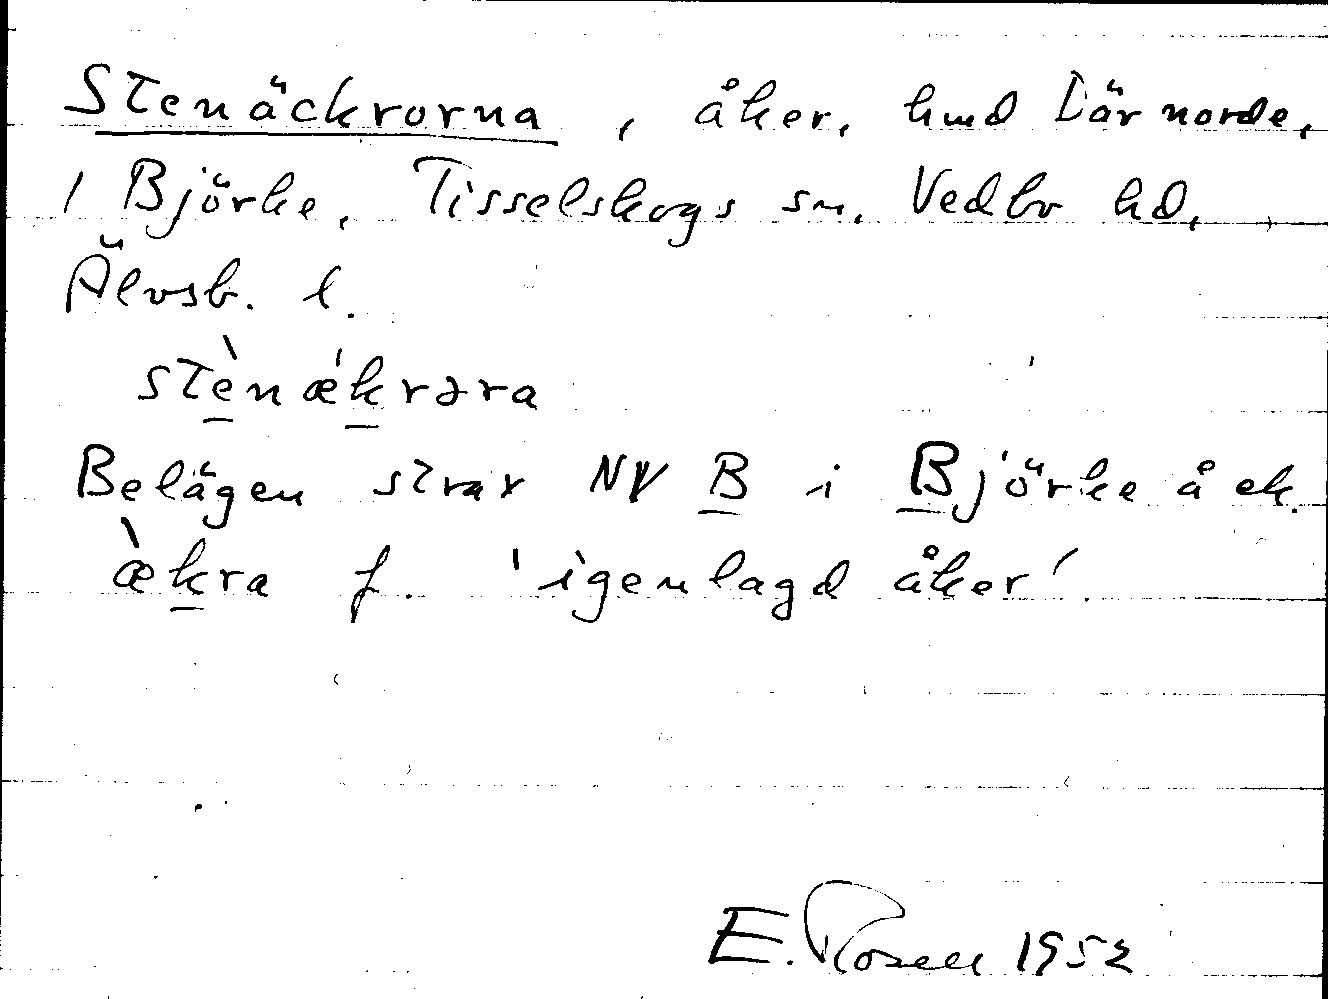 Stenäckrorna, åker, hmd Där norde,
1 Björke, Tisselskogs sn, Vedbo hd,
Älvsb. l.
stènækrəra
Belägen strax NV B i Björke å ek.
ækra f. 'igenlagd åker'.
E. Rosell 1952